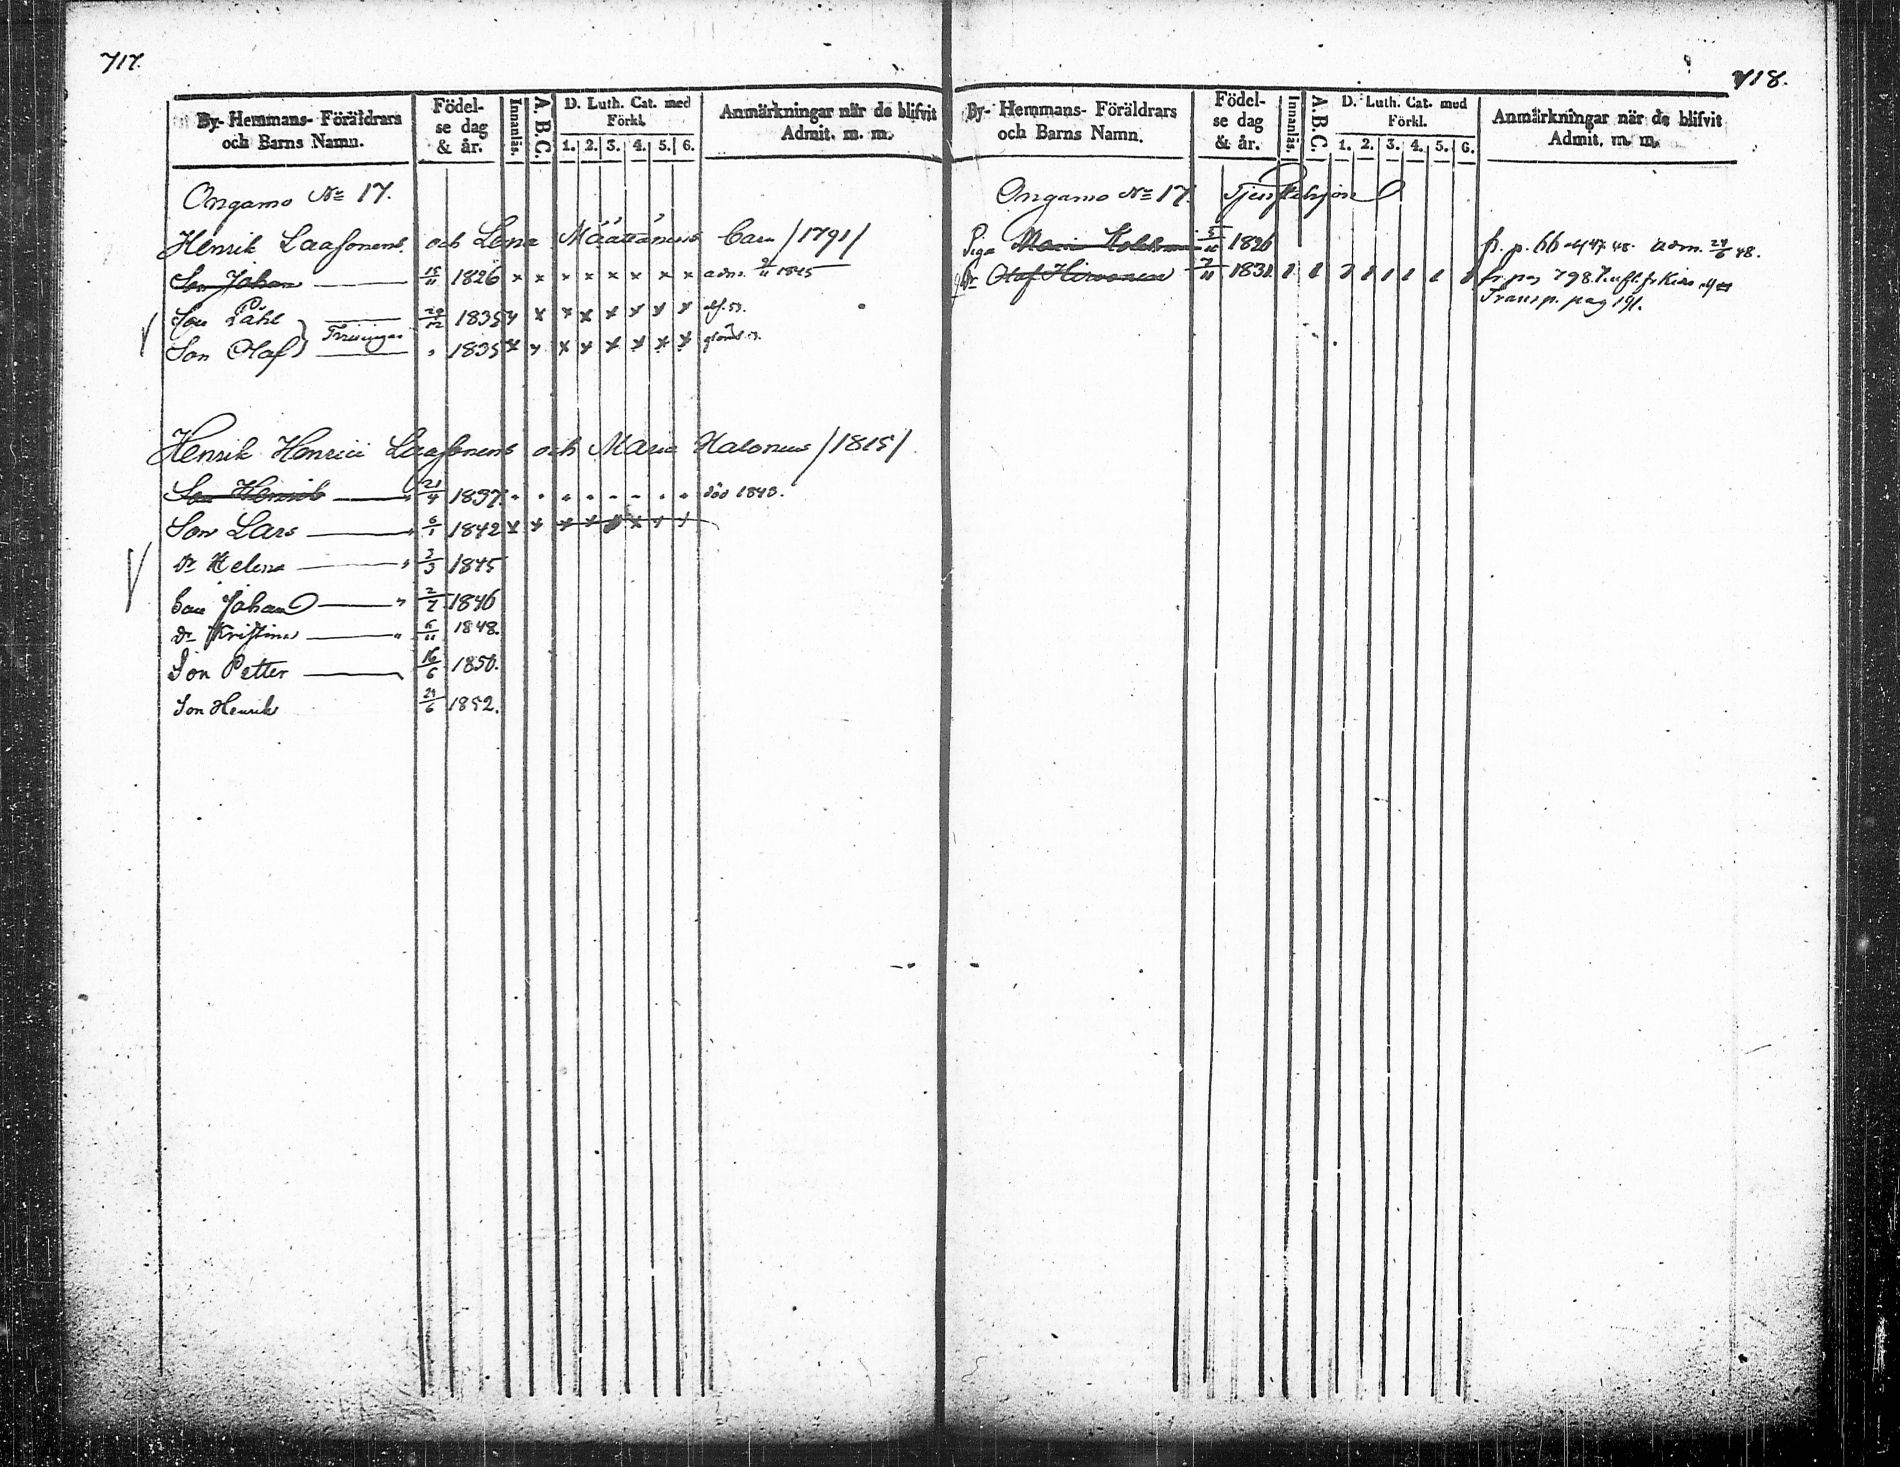 717.
By- Hemmans- Föräldrars och Barns Namn.
Födelse dag & år.
Innanläs.
A. B. C.
D. Luth. Cat. med Förkl.
1. 2. 3. 4. 5. 6.
Anmärkningar när de blifvit Admit. m. m.
Ongamo No 17.
Henrik Laasonens och Lena Määttänens Barn /1791/
Son Johan 15/11 1826 x x x x x x x x adm. 1845
Son Påhl 1835 x x x x x x x
Tvillingar
Son Olof " 1835 x x x x x x x x
Henrik Henrici Laasonens och Maria Halonens /1815/
Son Henrik 21/4 1837 . . . . . . . . död 1843.
Son Lars 6/1 1842 x x x x x x
Dr Helena " 3/3 1845
Son Johan " 2/7 1846
Dr Kristina " 5/11 1848.
Son Petter 16/6 1850.
Son Henrik 24/6 1852.
718.
By- Hemmans- Föräldrars och Barns Namn.
Födelse dag & år.
Innanläs.
A. B. C.
D. Luth. Cat. med Förkl.
1. 2. 3. 4. 5. 6.
Anmärkningar när de blifvit Admit. m. m.
Ongamo No 17. Tjenstehjon
Piga Maria 1826 fr. p. 66 adm. 24/6 48.
Dr Olof Hirvonen 7/11 1831 fr. pag 798.
Transp. pag 191.